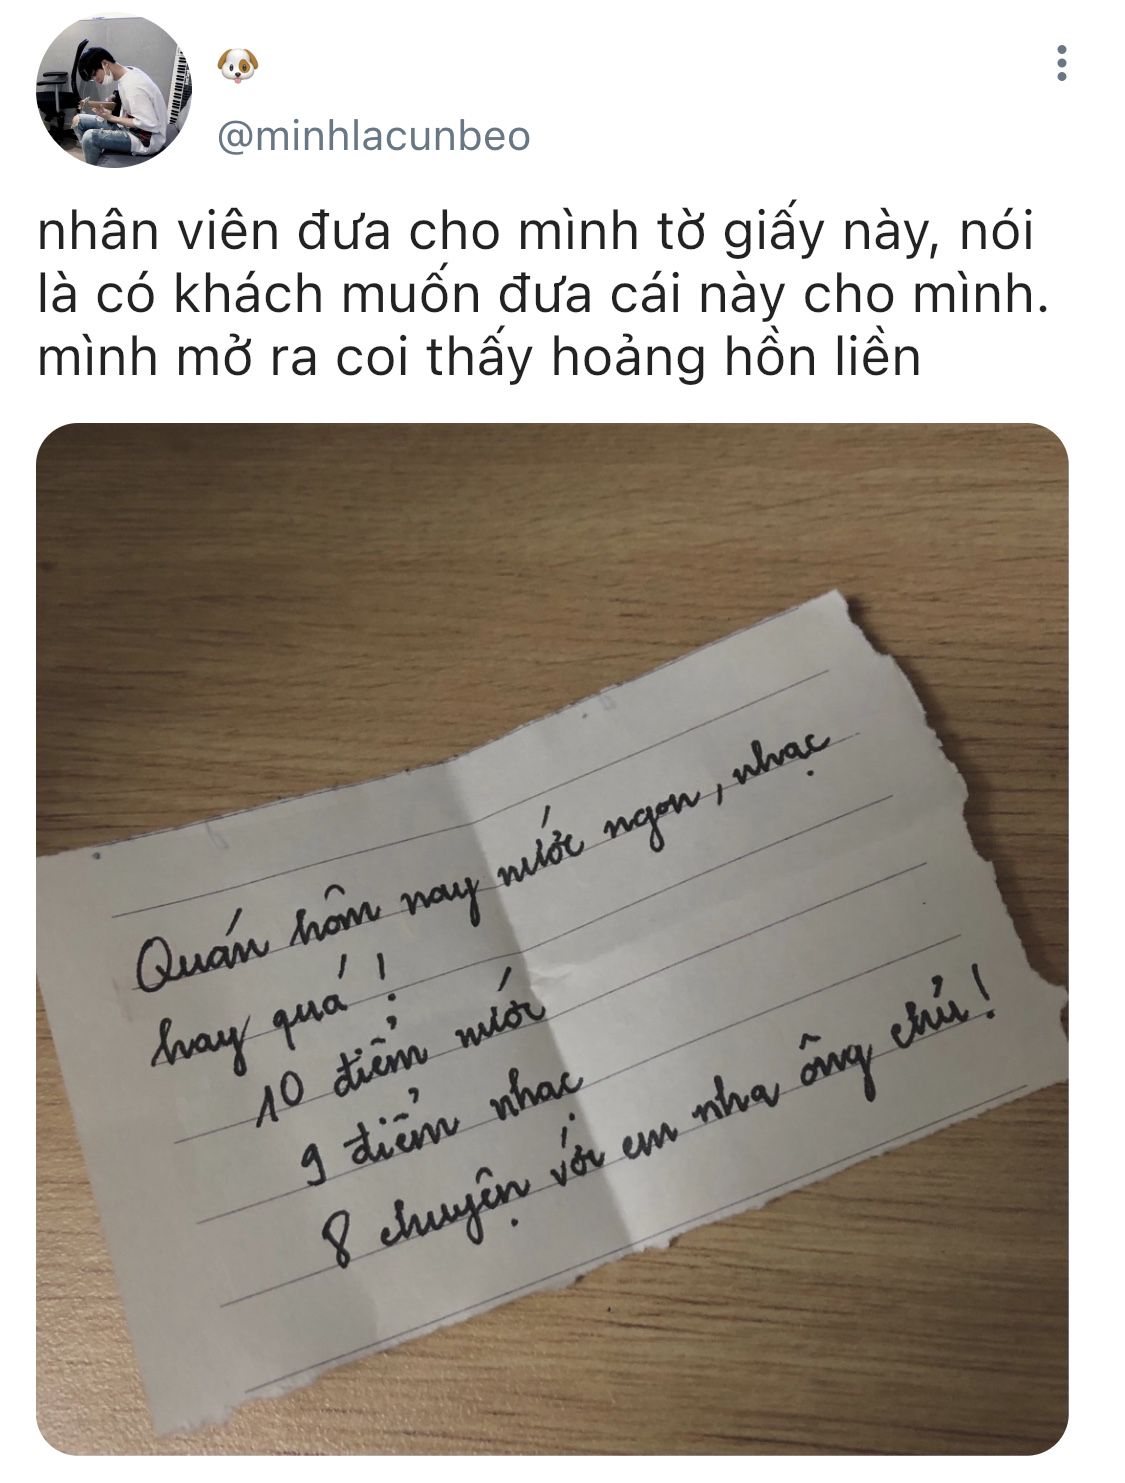 🐶
@minhlacunbeo
nhân viên đưa cho mình tờ giấy này, nói
là có khách muốn đưa cái này cho mình.
mình mở ra coi thấy hoảng hồn liền
Quán hôm nay nước ngon, nhạc
hay quá!
10 điểm nước
9 điểm nhạc
8 chuyện với em nha ông chủ!